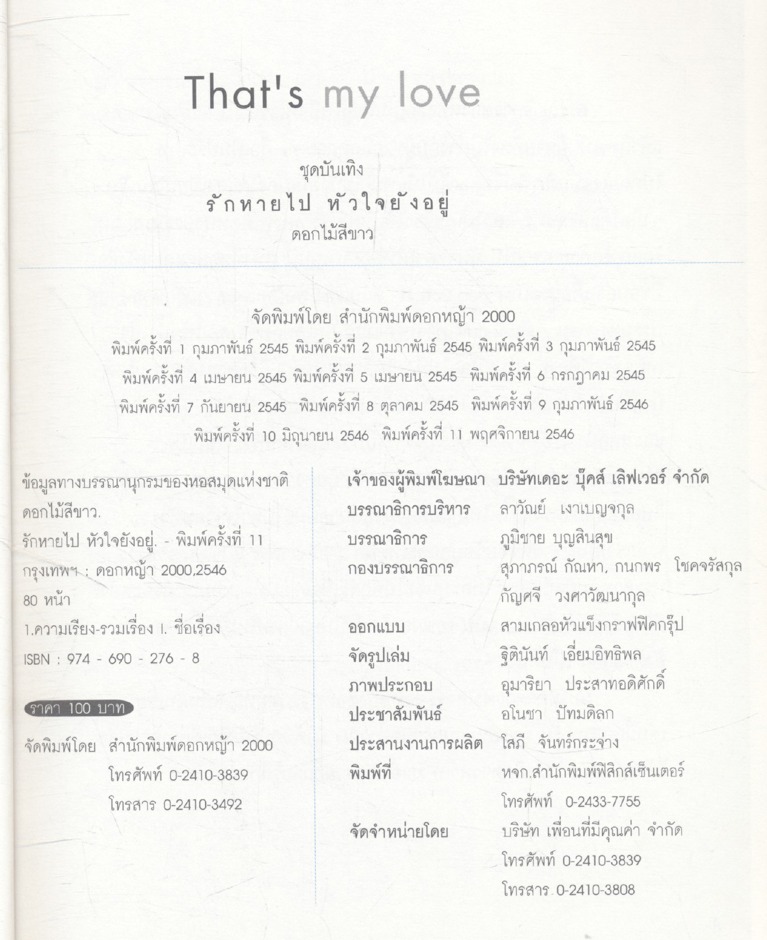 That's my love
ชุดบันเทิง
รักหายไป หัวใจยังอยู่
ดอกไม้สีขาว
จัดพิมพ์โดย สำนักพิมพ์ดอกหญ้า 2000
พิมพ์ครั้งที่ 1 กุมภาพันธ์ 2545 พิมพ์ครั้งที่ 2 กุมภาพันธ์ 2545 พิมพ์ครั้งที่ 3 กุมภาพันธ์ 2545
พิมพ์ครั้งที่ 4 เมษายน 2545 พิมพ์ครั้งที่ 5 เมษายน 2545 พิมพ์ครั้งที่ 6 กรกฎาคม 2545
พิมพ์ครั้งที่ 7 กันยายน 2545 พิมพ์ครั้งที่ 8 ตุลาคม 2545 พิมพ์ครั้งที่ 9 กุมภาพันธ์ 2546
พิมพ์ครั้งที่ 10 มิถุนายน 2546 พิมพ์ครั้งที่ 11 พฤศจิกายน 2546
ข้อมูลทางบรรณานุกรมของหอสมุดแห่งชาติ
ดอกไม้สีขาว.
รักหายไป หัวใจยังอยู่. - พิมพ์ครั้งที่ 11
กรุงเทพฯ : ดอกหญ้า 2000,2546
80 หน้า
1.ความเรียง-รวมเรื่อง I. ชื่อเรื่อง
ISBN : 974 - 690 - 276 - 8
ราคา 100 บาท
จัดพิมพ์โดย สำนักพิมพ์ดอกหญ้า 2000
โทรศัพท์ 0-2410-3839
โทรสาร 0-2410-3492
เจ้าของผู้พิมพ์โฆษณา บริษัทเดอะ บุ๊คส์ เลิฟเวอร์ จำกัด
บรรณาธิการบริหาร ลาวัณย์ เงาเบญจกุล
บรรณาธิการ ภูมิชาย บุญสินสุข
กองบรรณาธิการ สุภาภรณ์ กัณหา, กนกพร โชคจรัสกุล
กัญศจี วงศาวัฒนากุล
ออกแบบ สามเกลอหัวแข็งกราฟฟิคกรุ๊ป
จัดรูปเล่ม ฐิตินันท์ เอี่ยมอิทธิพล
ภาพประกอบ อุมาริยา ประสาทอดิศักดิ์
ประชาสัมพันธ์ อโนชา ปัทมดิลก
ประสานงานการผลิต โสภี จันทร์กระจ่าง
พิมพ์ที่ หจก.สำนักพิมพ์ฟิสิกส์เซ็นเตอร์
โทรศัพท์ 0-2433-7755
จัดจำหน่ายโดย บริษัท เพื่อนที่มีคุณค่า จำกัด
โทรศัพท์ 0-2410-3839
โทรสาร 0-2410-3808